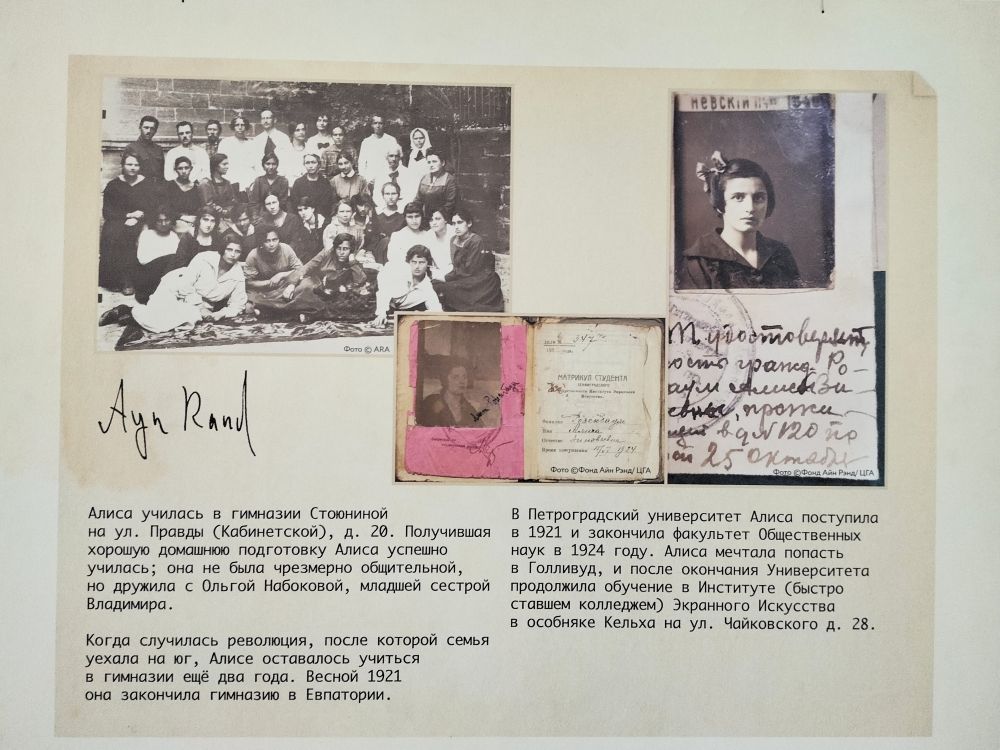 Фото © ARA
Ayn Rand
НЕВСКIЙ
МАТРИКУЛ СТУДЕНТА
Фамилия Розенбаум
Имя Алиса
Отчество Зиновьевна
Время поступления
Фото ©Фонд Айн Рэнд/ ЦГА
удостоверяет
гражд. Ро-
Алисы Зи-
прожи-
в д № 120 по
25 Октября
Фото ©Фонд Айн Рэнд/ ЦГА
Алиса училась в гимназии Стоюниной
на ул. Правды (Кабинетской), д. 20. Получившая
хорошую домашнюю подготовку Алиса успешно
училась; она не была чрезмерно общительной,
но дружила с Ольгой Набоковой, младшей сестрой
Владимира.
Когда случилась революция, после которой семья
уехала на юг, Алисе оставалось учиться
в гимназии ещё два года. Весной 1921
она закончила гимназию в Евпатории.
В Петроградский университет Алиса поступила
в 1921 и закончила факультет Общественных
наук в 1924 году. Алиса мечтала попасть
в Голливуд, и после окончания Университета
продолжила обучение в Институте (быстро
ставшем колледжем) Экранного Искусства
в особняке Кельха на ул. Чайковского д. 28.